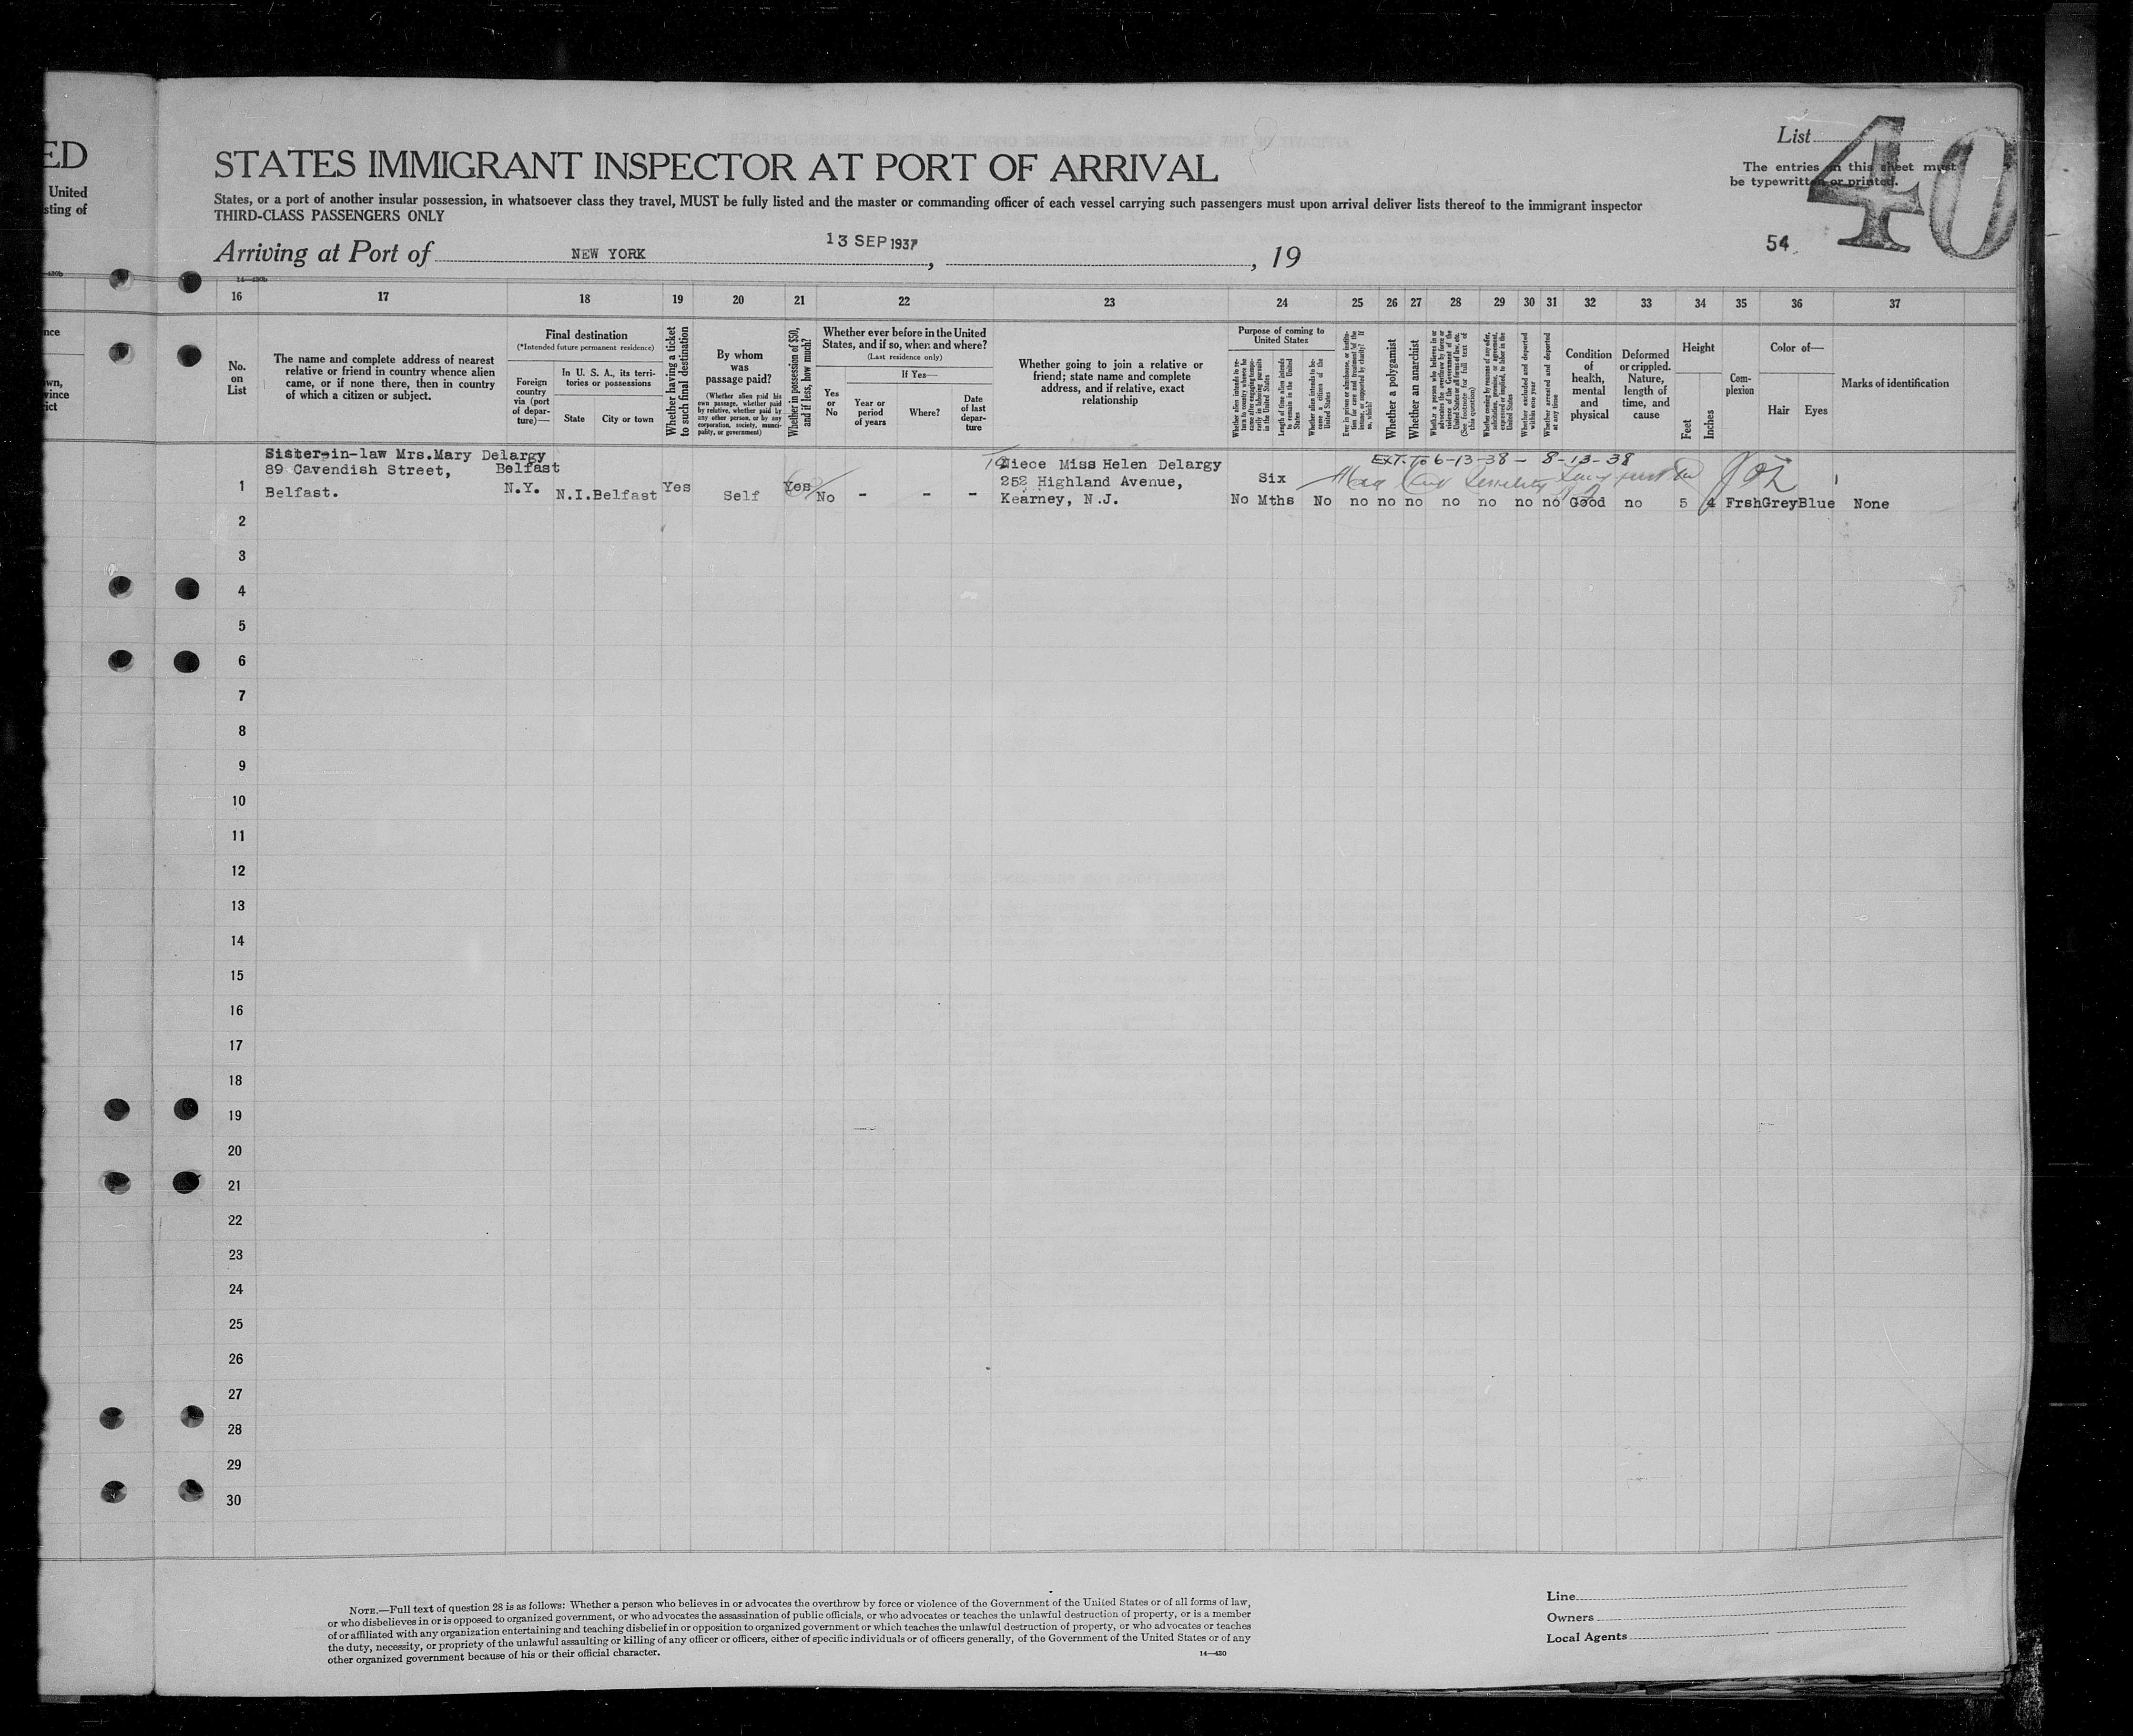 ED
United
sting of
STATES IMMIGRANT INSPECTOR AT PORT OF ARRIVAL
States, or a port of another insular possession, in whatsoever class they travel, MUST be fully listed and the master or commanding officer of each vessel carrying such passengers must upon arrival deliver lists thereof to the immigrant inspector
THIRD-CLASS PASSENGERS ONLY
List
40
The entries on this sheet must
be typewritten or printed.
54
Arriving at Port of NEW YORK 13 SEP 1937, , 19
16 17 18 19 20 21 22 23 24 25 26 27 28 29 30 31 32 33 34 35 36 37
No. on List
The name and complete address of nearest relative or friend in country whence alien came, or if none there, then in country of which a citizen or subject.
Final destination
(*Intended future permanent residence)
Foreign country via (port of departure)—
In U. S. A., its territories or possessions
State
City or town
Whether having a ticket to such final destination
By whom was passage paid?
(Whether alien paid his own passage, whether paid by relative, whether paid by any other person, or by any corporation, society, municipality, or government)
Whether in possession of $50, and if less, how much?
Whether ever before in the United States, and if so, when and where?
(Last residence only)
Yes or No
If Yes—
Year or period of years
Where?
Date of last departure
Whether going to join a relative or friend; state name and complete address, and if relative, exact relationship
Purpose of coming to United States
Whether alien intends to return to country whence he came after engaging temporarily in laboring pursuits in the United States
Length of time alien intends to remain in the United States
Whether alien intends to become a citizen of the United States
Ever in prison or almshouse, or institution for care and treatment of the insane, or supported by charity? If so, which?
Whether a polygamist
Whether an anarchist
Whether a person who believes in or advocates the overthrow by force or violence of the Government of the United States or all forms of law, etc. (See footnote for full text of this question)
Whether coming by reasons of any offer, solicitation, promise, or agreement, expressed or implied, to labor in the United States
Whether excluded and deported within one year
Whether arrested and deported at any time
Condition of health, mental and physical
Deformed or crippled. Nature, length of time, and cause
Height
Feet
Inches
Complexion
Color of—
Hair
Eyes
Marks of identification
Sister-in-law Mrs.Mary Delargy
89 Cavendish Street, Belfast
Belfast. N.Y. N.I.Belfast Yes Self Yes No - - -
To Niece Miss Helen Delargy
252 Highland Avenue,
Kearney, N.J.
EXT. To 6-13-38 - 8-13-38
Six
No Mths No no no no no no no no Good no 5 4 Frsh Grey Blue None
1
2
3
4
5
6
7
8
9
10
11
12
13
14
15
16
17
18
19
20
21
22
23
24
25
26
27
28
29
30
NOTE.—Full text of question 28 is as follows: Whether a person who believes in or advocates the overthrow by force or violence of the Government of the United States or of all forms of law,
or who disbelieves in or is opposed to organized government, or who advocates the assassination of public officials, or who advocates or teaches the unlawful destruction of property, or is a member
of or affiliated with any organization entertaining and teaching disbelief in or opposition to organized government or which teaches the unlawful destruction of property, or who advocates or teaches
the duty, necessity, or propriety of the unlawful assaulting or killing of any officer or officers, either of specific individuals or of officers generally, of the Government of the United States or of any
other organized government because of his or their official character.
14—430
Line
Owners
Local Agents